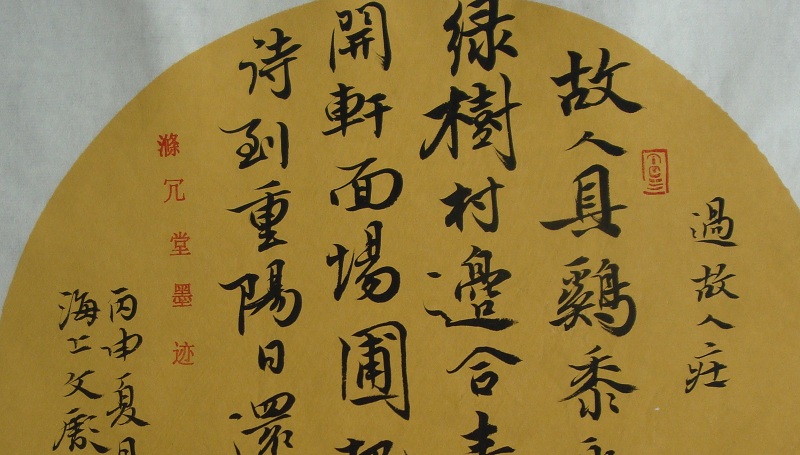 過故人庄
故人具鷄黍
绿樹村邊合青
開軒面場圃
待到重陽日還
滌冗堂墨迹
丙申夏月
海上文